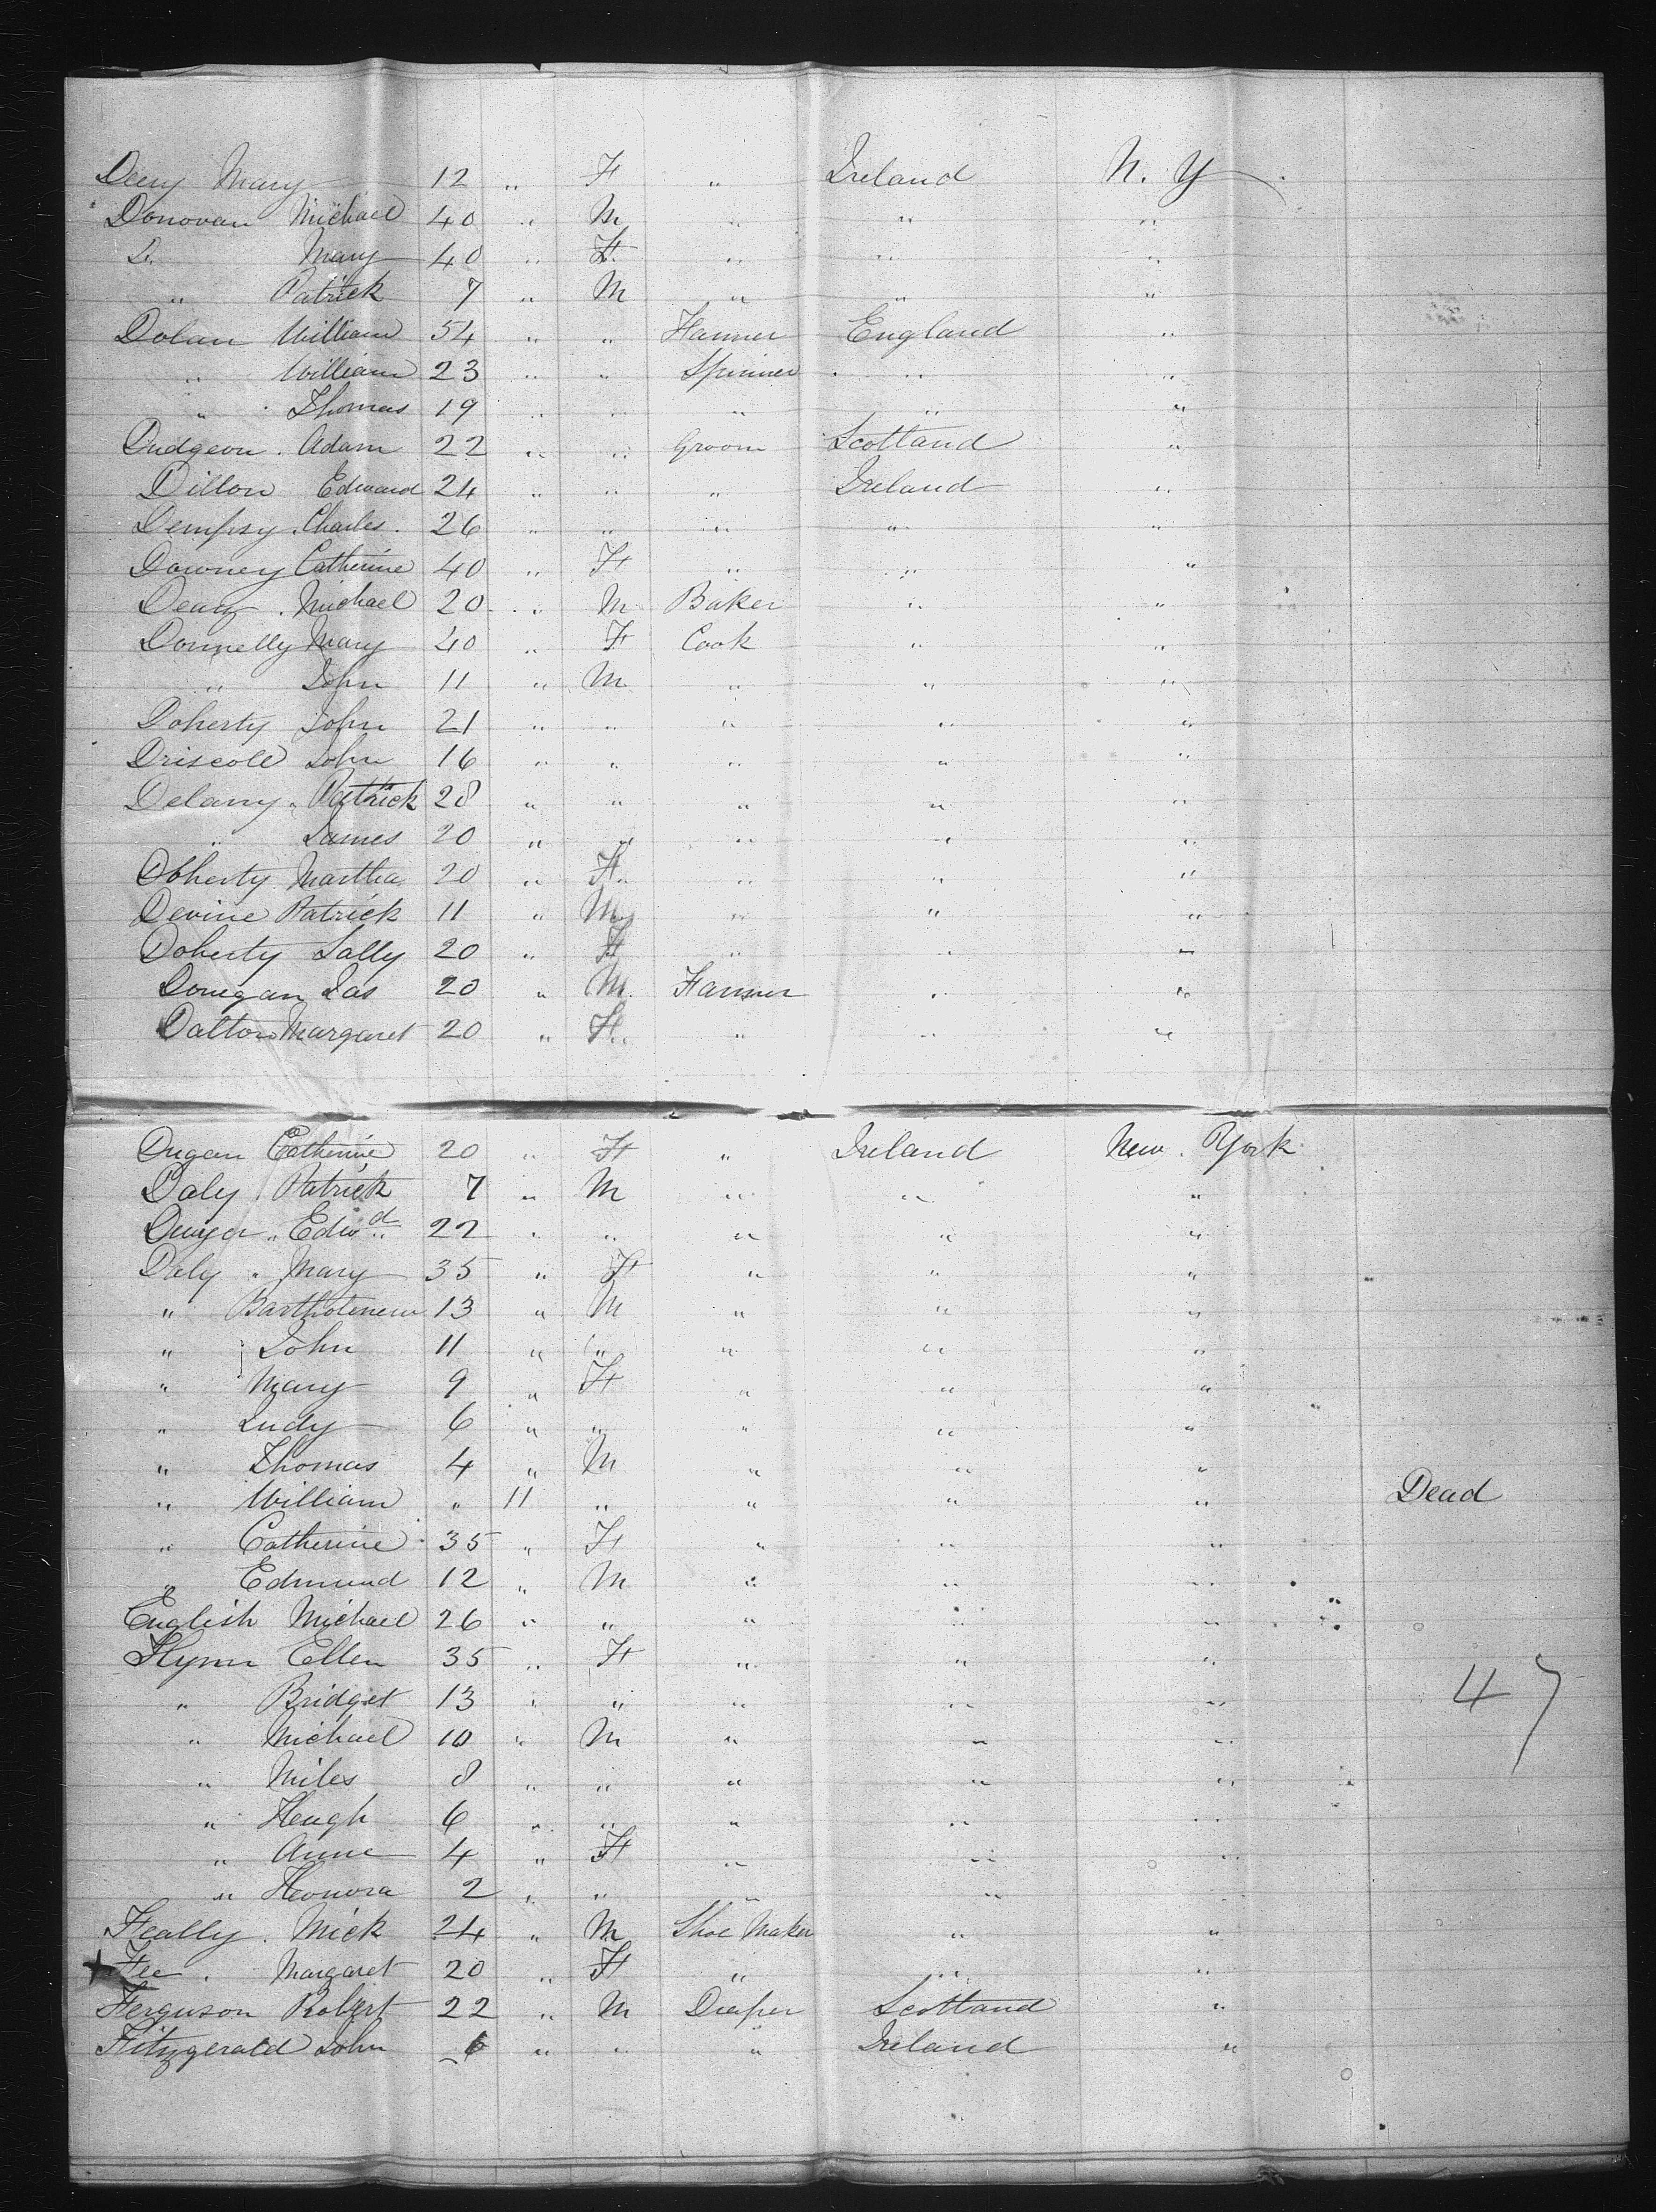 Deery Mary 12 " F " Ireland N. Y
Donovan Michael 40 " M " " "
D. Mary 40 " F. " " "
" Patrick 7 " M " " "
Dolan William 54 " " Farmer England "
" William 23 " " Spinner " "
" Thomas 19 " " " " "
Dudgeon. Adam 22 " " Groom Scotland "
Dillon Edward 24 " " " Ireland "
Dempsy. Charles. 26 " " " " "
Downey Catherine 40 " F " " "
Michael 20 " M Baker " "
Donnelly Mary 40 " F Cook " "
" John 11 " M " " "
Doherty John 21 " " " " "
Driscoll John 16 " " " " "
Delany " Patrick 28 " " " " "
" James 20 " " " " "
Doherty Martha 20 " F " " "
Devine Patrick 11 " M " " "
Doherty Sally 20 " F " " "
Donegan Jas 20 " M. Farmer " "
Dalton Margaret 20 " F " " "
Dugan Catherine 20 " F " Ireland New. York
Daly. Patrick 7 " M " " "
Dwyer " Edwd 22 " " " " "
Daly " Mary 35 " F " " "
" Bartholemew 13 " M " " "
" John 11 " " " " "
" Mary 9 " F " " "
" Judy 6 " " " " "
" Thomas 4 " M " " "
" William " 11 " " " " Dead
" Catherine 35 " F " " "
" Edmund 12 " M " " "
English Michael 26 " " " " "
Flynn Ellen 35 " F " " "
" Bridget 13 " " " " " 47
" Michael 10 " M " " "
" Miles 8 " " " " "
" Heugh 6 " " " " "
" Anne 4 " F " " "
" Honora 2 " " " " "
Feally. Mick 24 " M Shoe Maker " "
Fee. Margaret 20 " F " " "
Ferguson Robert 22 " M Draper Scotland "
Fitzgerald John 6 " " " Ireland "